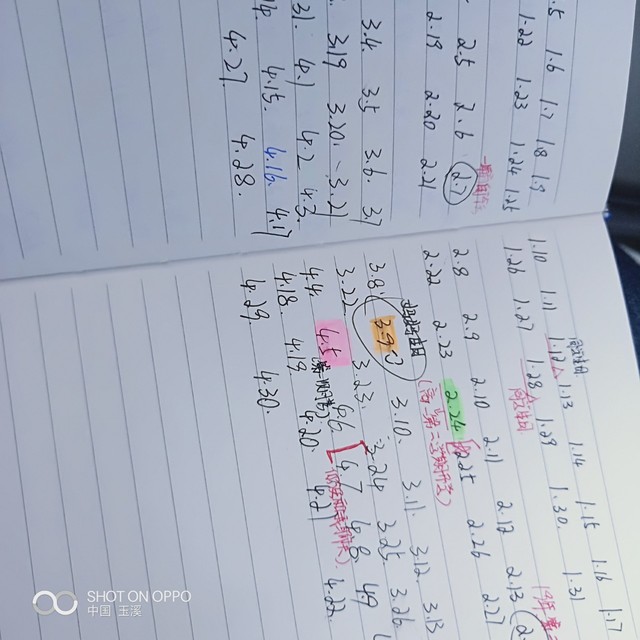 .5 1.6 1.7 1.8 1.9 1.10 1.11 1.12△ 1.13 1.14 1.15 1.16 1.17
1.22 1.23 1.24 1.25 1.26 1.27 1.28△ 1.29 1.30 1.31
2.5 2.6 2.7 2.8 2.9 2.10 2.11 2.12 2.13
2.19 2.20 2.21 2.22 2.23 2.24 2.25 2.26 2.27
(高一第二学期开学)
3.4 3.5 3.6 3.7 3.8 3.9 3.10 3.11 3.12 3.13
3.19 3.20 3.21 3.22 3.23 3.24 3.25 3.26
31. 4.1 4.2 4.3 4.4 4.5 4.6 4.7 4.8 4.9
4.15 4.16 4.17 4.18 4.19 4.20 4.21 4.22
4.27 4.28 4.29 4.30
SHOT ON OPPO
中国 玉溪